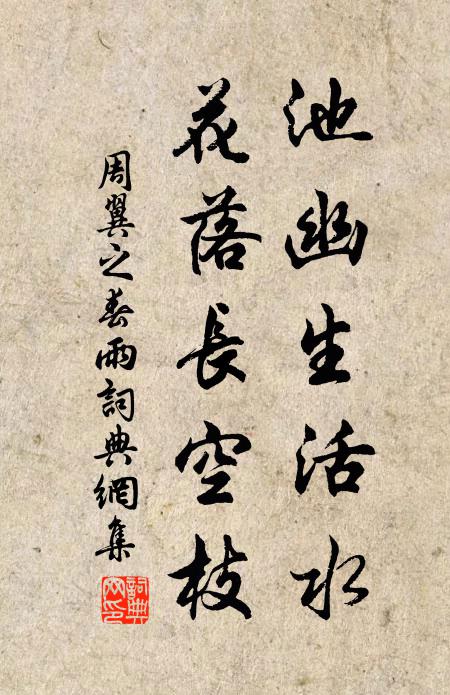 池幽生活水
花落長空枝
周翼之春雨詞典網集
詞典
网印